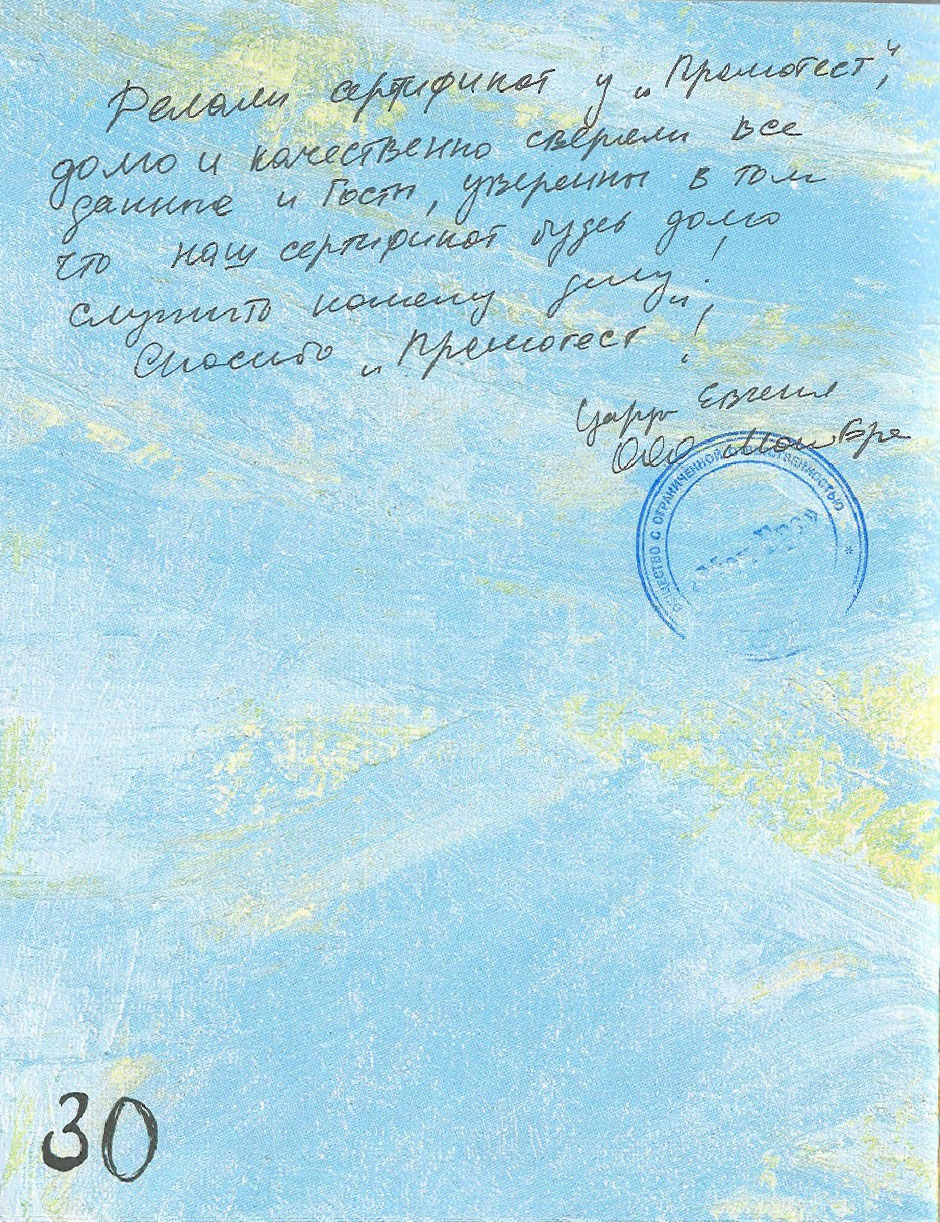 Делали сертификат у „Премотест",
долго и качественно сверяли все
данные и Госты, уверенны в том
что наш сертификат будеь долго
служить нашему делу!
Спасибо „Премотест"!
Евгения
ООО
ОБЩЕСТВО С ОГРАНИЧЕННОЙ ОТВЕТСТВЕННОСТЬЮ *
30